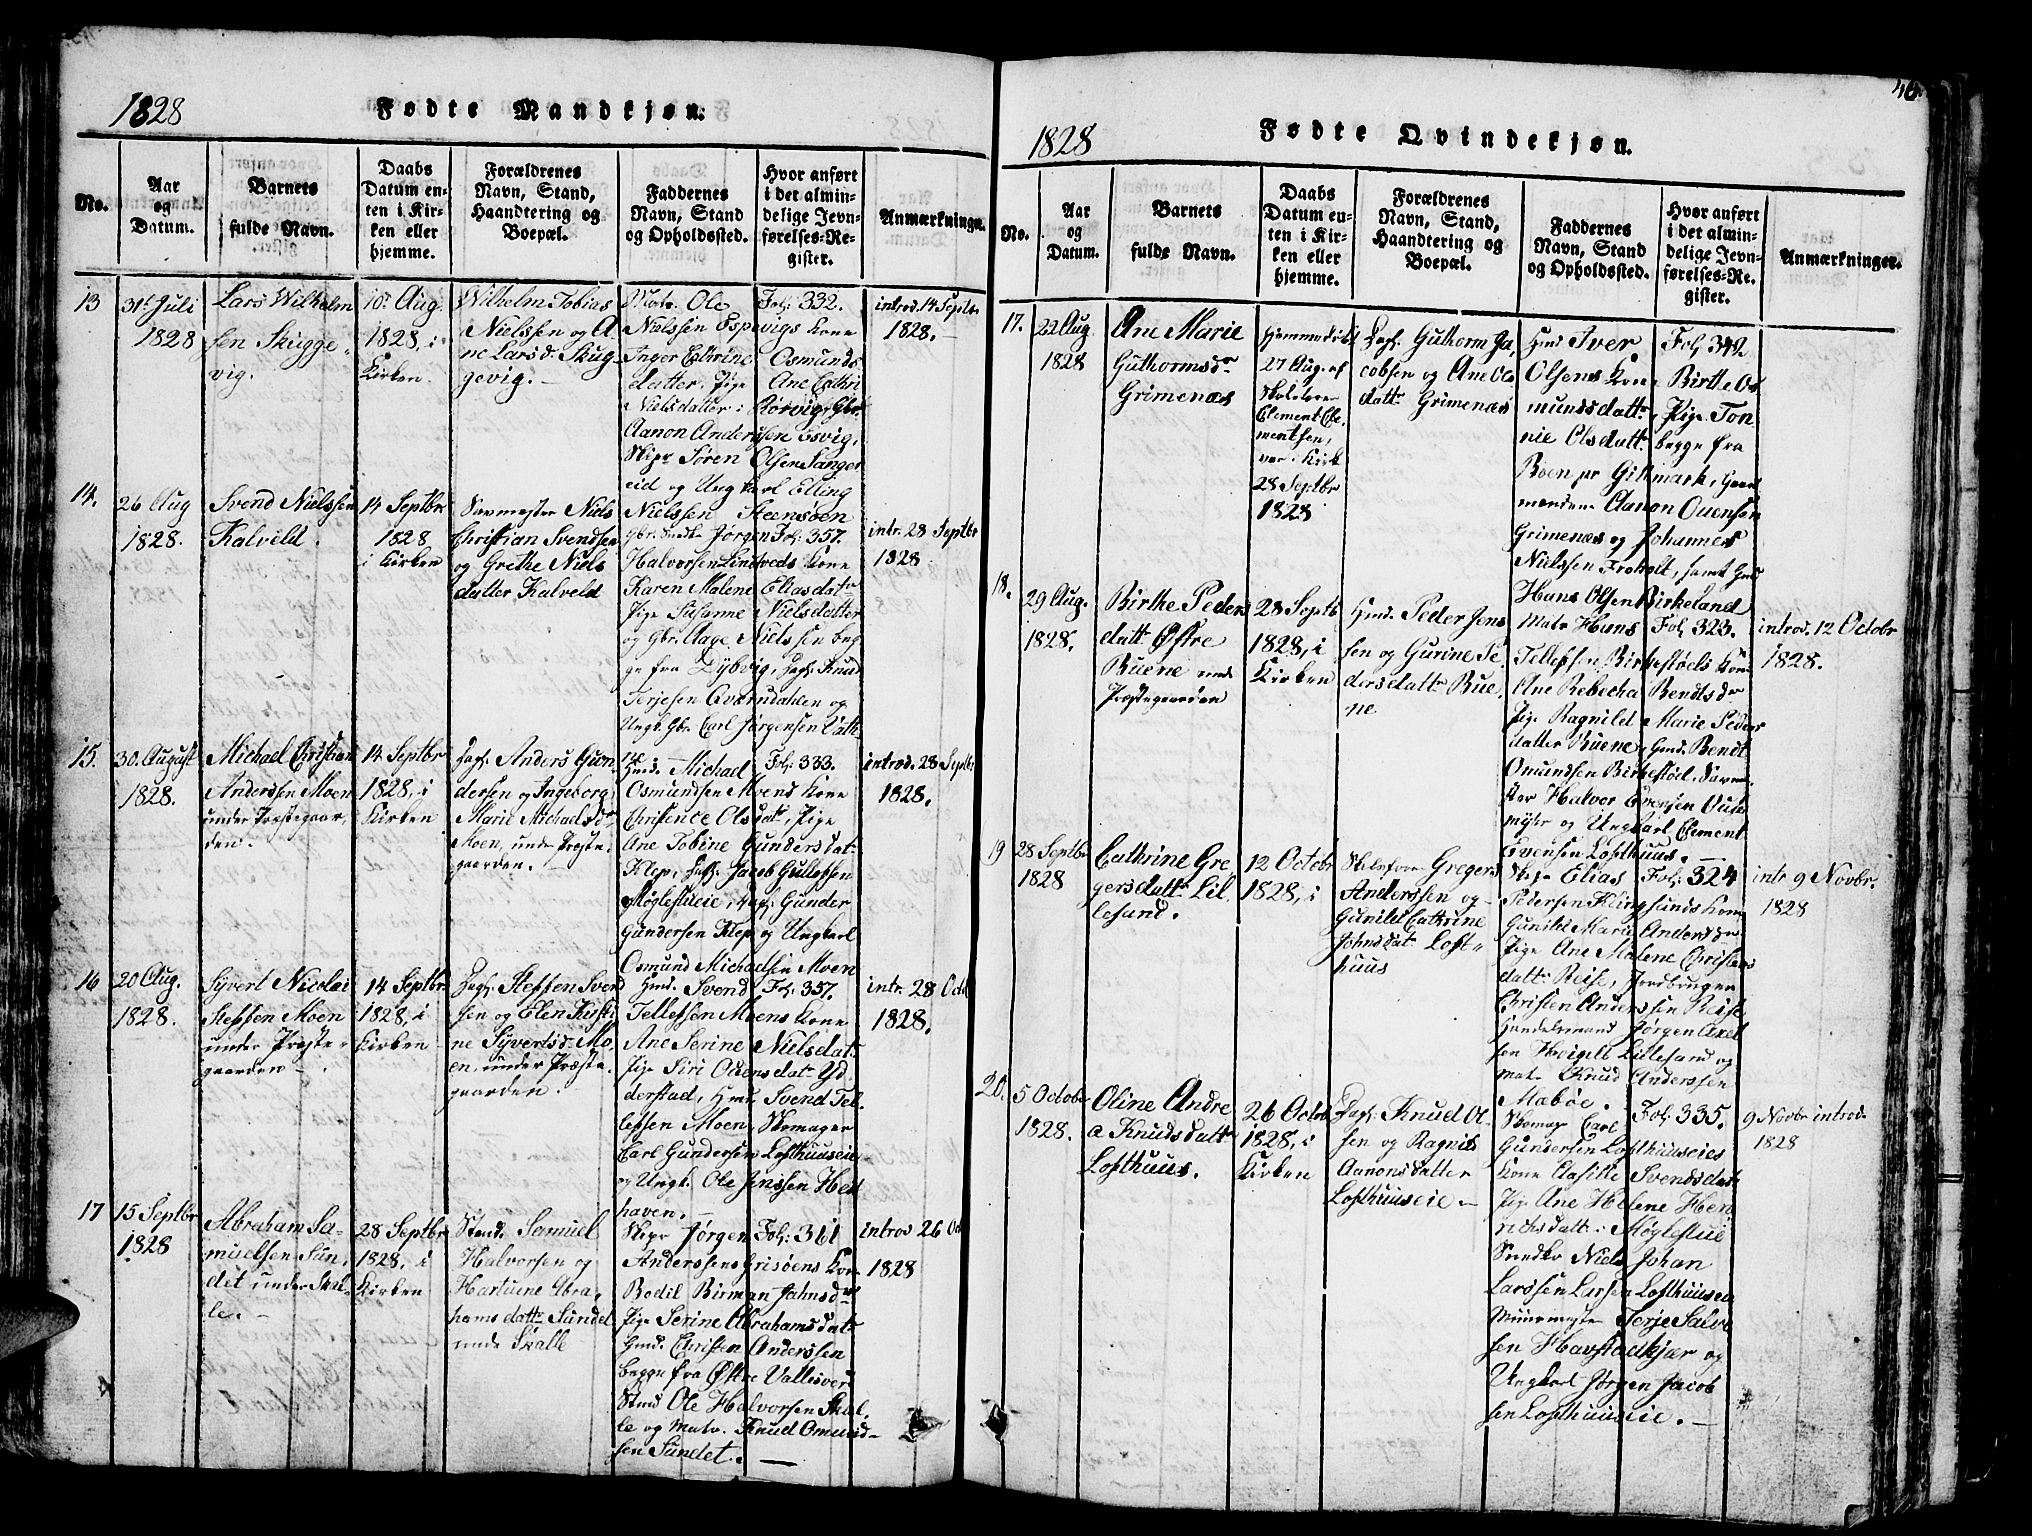 1828
Fødte Mandkjøn.
No.
Aar
og
Datum.
Barnets
fulde Navn.
Daabs
Datum en-
ten i Kir-
ken eller
hjemme.
Forældrenes
Navn, Stand,
Haandtering og
Boepæl.
Faddernes
Navn, Stand
og Opholdssted.
Hvor anført
i det almin-
delige Jevn-
førelses-Re-
gister.
Anmærkninger.
13
31t Juli
1828
Lars Wilhelm
sen Skugge-
vig.
10t Aug.
1828, i
Kirken.
Wilhelm Tobias
Nielssen og A
ne Larsd. Skug-
gevig. -
Matr. Ole
Nielssen Espevigs Kone
Inger Cathrine Osmunds
datter, Pige Ane Cathri
Nielsdatter i Rørvig, Gbr.
Aanon Anderssen Esvig,
Skipr Søren Olsen Sanger
eid og Ungkarl Elling
Nielssen Steensøen
Fol: 332.
introd. 14 Septbr
1828. -
14.
26 Aug
1828.
Svend Nielssen
Kalveld.
14 Septbr.
1828
i Kirken
Savmester Niels
Christian Svendsen
og Grethe Niels
datter Kalveld
Gbr. Jørgen
Halvorsen Lindtveds Kone
Karen Malene Eliasdatr
Pige Susanne Nielsdatter
og Gbr. Aage Nielssen beg
ge fra Dybvig, Dagl. Knud
Terjesen Qværndahlen og
Ungk. Gbr. Carl Jørgensen
Fol: 357.
intr. 28 Septbr
1828
15.
30. August
1828.
Michael Christian
Anderssen Moen
under Præstegaar-
den.
14 Septbr
1828, i
Kirken
Dagl. Anders Gun
dersen og Ingeborg
Marie Michaelsdr
Moen, under Præste-
gaarden. -
Hmd. Michael
Osmundsen Moens Kone
Christence Olsdat., Pige
Ane Tobine Gundersdatr
Klep, Jacob Gullessen
Møglestueie, Dagl. Gunder
Gundersen Klep og Ungkarl
Osmund Michaelsen Moen
Fol: 333.
introd. 28 Septbr
1828.
16
20 Aug.
1828.
Syvert Nicolai
Steffsen Moen
under Præste-
gaarden -
14 Septbr.
1828, i
Kirken
Dagl. Steffen Svend
sen og Elen Kirsti
ne Syvertsd. Mo-
en, under Præste-
gaarden.
Hmd. Svend
Tellefsen Moens Kone
Ane Serine Nielsdatr
Pige Siri Ouensdatr Yd
derstad, Hmd. Svend Tel-
lefsen Moen, Skomager
Carl Gundersen Lofthuuseie
og Ungk. Ole Jenssen Hel
haven. -
Fol: 357.
intr. 28 Oct
1828.
17
15 Septbr
1828
Abraham Sa-
muelsen Sun-
det under Skal-
le. -
28 Septbr
1828, i
Kirken
Stmd. Samuel
Halvorsen og
Hartuene Abra-
hamsdattr Sundet
under Skalle
Skipr Jørgen
Anderssens Grisøens Kone
Bodil Birman Jahnsdr
Pige Serine Abrahamsdatr
Hmd. Christen Anderssen
begge fra Østre Vallesverd
Stmd. Ole Halvorsen Skal-
le og Matr. Knud Omund-
sen Sundet. -
Fol: 361
introd 26 Oct
1828
46.
1828
Fødte Qvindekjøn.
No.
Aar
og
Datum.
Barnets
fulde Navn.
Daabs
Datum en-
ten i Kir-
ken eller
hjemme.
Forældrenes
Navn, Stand,
Haandtering og
Boepæl.
Faddernes
Navn, Stand
og Opholdssted.
Hvor anført
i det almin-
delige Jevn-
førelses-Re-
gister.
Anmærkninger.
17.
22 Aug
1828
Ane Marie
Guthormsdr
Grimenæs
Hjemmedøbt
27 Aug. af
Skolelærer
Clement Cle-
mentsen,
var i Kirk
28 Septbr
1828
Dagl. Guthorm Ja-
cobsen og Ane Ols
datt. Grimenæs
Hmd Iver
Olsens Kone, Birthe Os
mundsdattr, Pige Ton
nie Olsdattr begge fra
Boen pr Gitmark, Gaard
manden Aanon Ouensen
Grimenæs og Johannes
Nielssen Froholt, samt
Hans Olsen Birkeland
Fol: 342.
18.
29 Aug.
1828.
Birthe Peders
datt. Østre
Buene under
Præstegaarden
28 Septb.
1828, i
Kirken
Hmd. Peder Jens
sen og Gurine Pe
dersdattr Bue-
ne
Matr Hans
Tellefsen Birkestøels Kone
Ane Rebecha Bendtsdr
Pige Ragnild Marie Peders
datter Buene, Hmd. Bendt
Omundsen Birkestøel, Savme
ster Halvor Evensen Ouse
myhr og Ungkarl Clement
Evensen Lofthuus. -
Fol: 323.
introd. 12 Octobr
1828.
19
28 Septbr
1828
Cathrine Gre-
gersdattr Lil-
lesund.
12 Octobr
1828, i
Gregers
Anderssen og
Gunild Cathrine
Johnsdat. Loft-
huus
Skipr Elias
Pedersen Klingsunds Kone
Gunild Marie Andersdr
Pige Ane Malene Christens
datt. Reise, Jordbruger
Christen Anderssen Reise,
Handelsmand Jørgen Axel
sen Lillesand og
Matr. Knud Anderssen
Mabøe.
Fol: 324
intr. 9 Novbr.
1828
20.
5 Octobr
1828.
Oline Andre
a Knudsdattr
Lofthuus.
26 Octob
1828, i
Kirken
Dagl. Knud Ol
sen og Ragnild
Aanonsdatter
Lofthuuseie -
Skomag Carl
Gundersen Lofthuuseies
Kone Aasille Svendsdatr
Pige Ane Helene Hen
richsdatt. i Møglestue
Snedkr Niels Johan
Larssen Larsen Lofthuuseie
Muurmester Terje Salve
sen Havstadkjær og
Ungkarl Jørgen Jacob
sen Lofthuuseie. -
Fol: 335.
9 Novbr introd.
1828